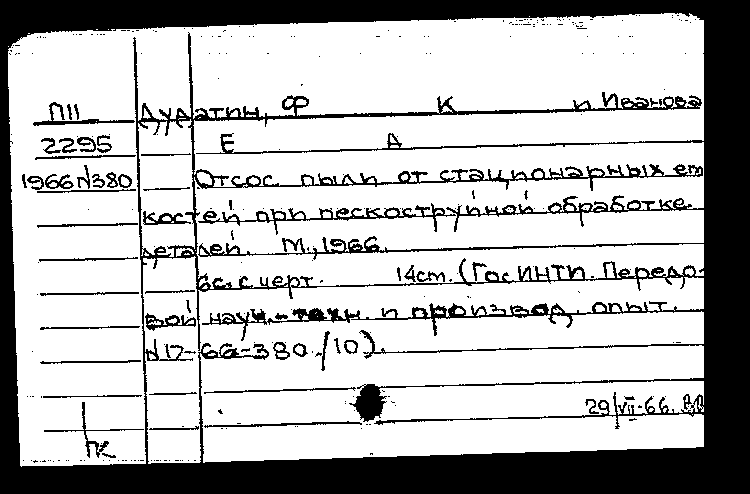 П11 Дудатин, Ф К и Иванова
2295 Е А
1966 N380 Отсос пыли от стационарных ем
костей при пескоструйной обработке
деталей. М., 1966.
6с. с черт. 14см. (ГосИНТИ. Передо-
вой науч.-техн. и производ. опыт.
N17-66-380/10).
29/VII-66.
ПК